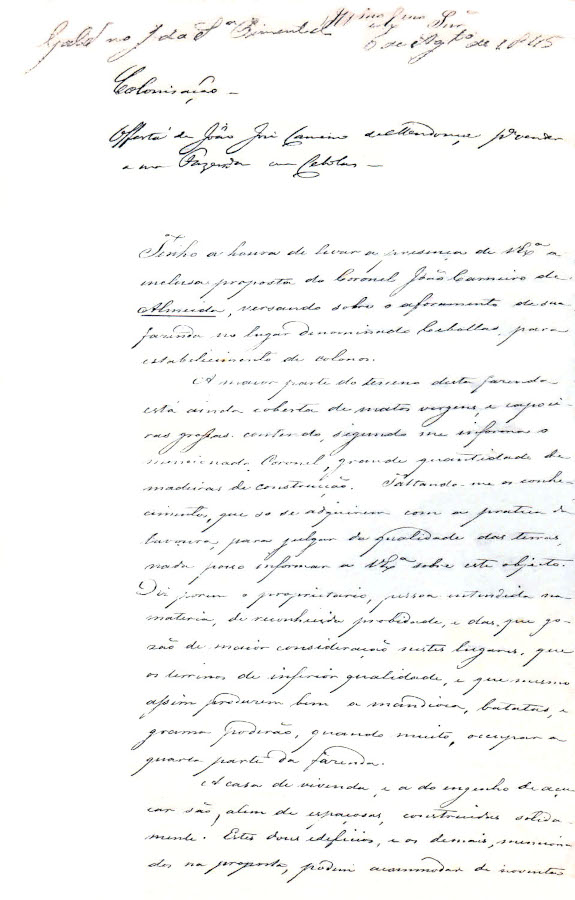 Illmo Exmo Snr
6 de Agto de 1845
Colonisação
Offerta de João José Carneiro de Mendonça, pa vender
a sua Fazenda em Cebolas
Tenho a honra de levar a presença de VExª a
inclusa proposta do Coronel João Carneiro de
Almeida, versando sobre o aforamento de sua
fazenda no lugar denominado Ceballas, para
estabelecimento de colonos.
A maior parte do terreno desta fazenda
está ainda coberta de matos virgens, e capoei-
ras grossas, contendo, segundo me informa o
mencionado Coronel, grande quantidade de
madeiras de construcção. Faltando-me os conhe-
cimentos, que só se adquirem com a pratica da
lavoura, para julgar da qualidade das terras,
nada posso informar a VExª sobre este objecto.
Diz porem o proprietario, pessoa entendida na
materia, de reconhecida probidade, e das que go-
zão de maior consideração nestes lugares, que
os terrenos de inferior qualidade, e que mesmo
assim produzem bem a mandioca, batatas, e
grama poderão, quando muito, occupar a
quarta parte da fazenda.
A casa de vivenda, e a do engenho de açu-
car são, alem de espaçosas, construidas solida-
mente. Estes dous edificios, e os demais, menciona-
dos na proposta, podem acommodar de noventa